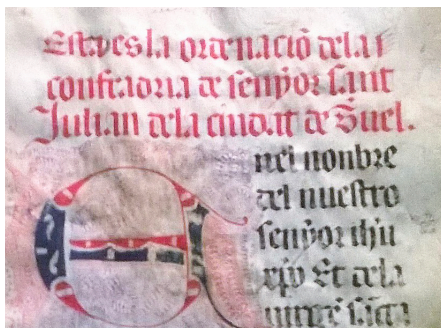 Esta es la ordenaciõ dela
confradria de senyor sant
Julian dela ciudat de T̃uel.
E nel nonbre
del nuestro
senyor ihũ
xp̃o Et dela